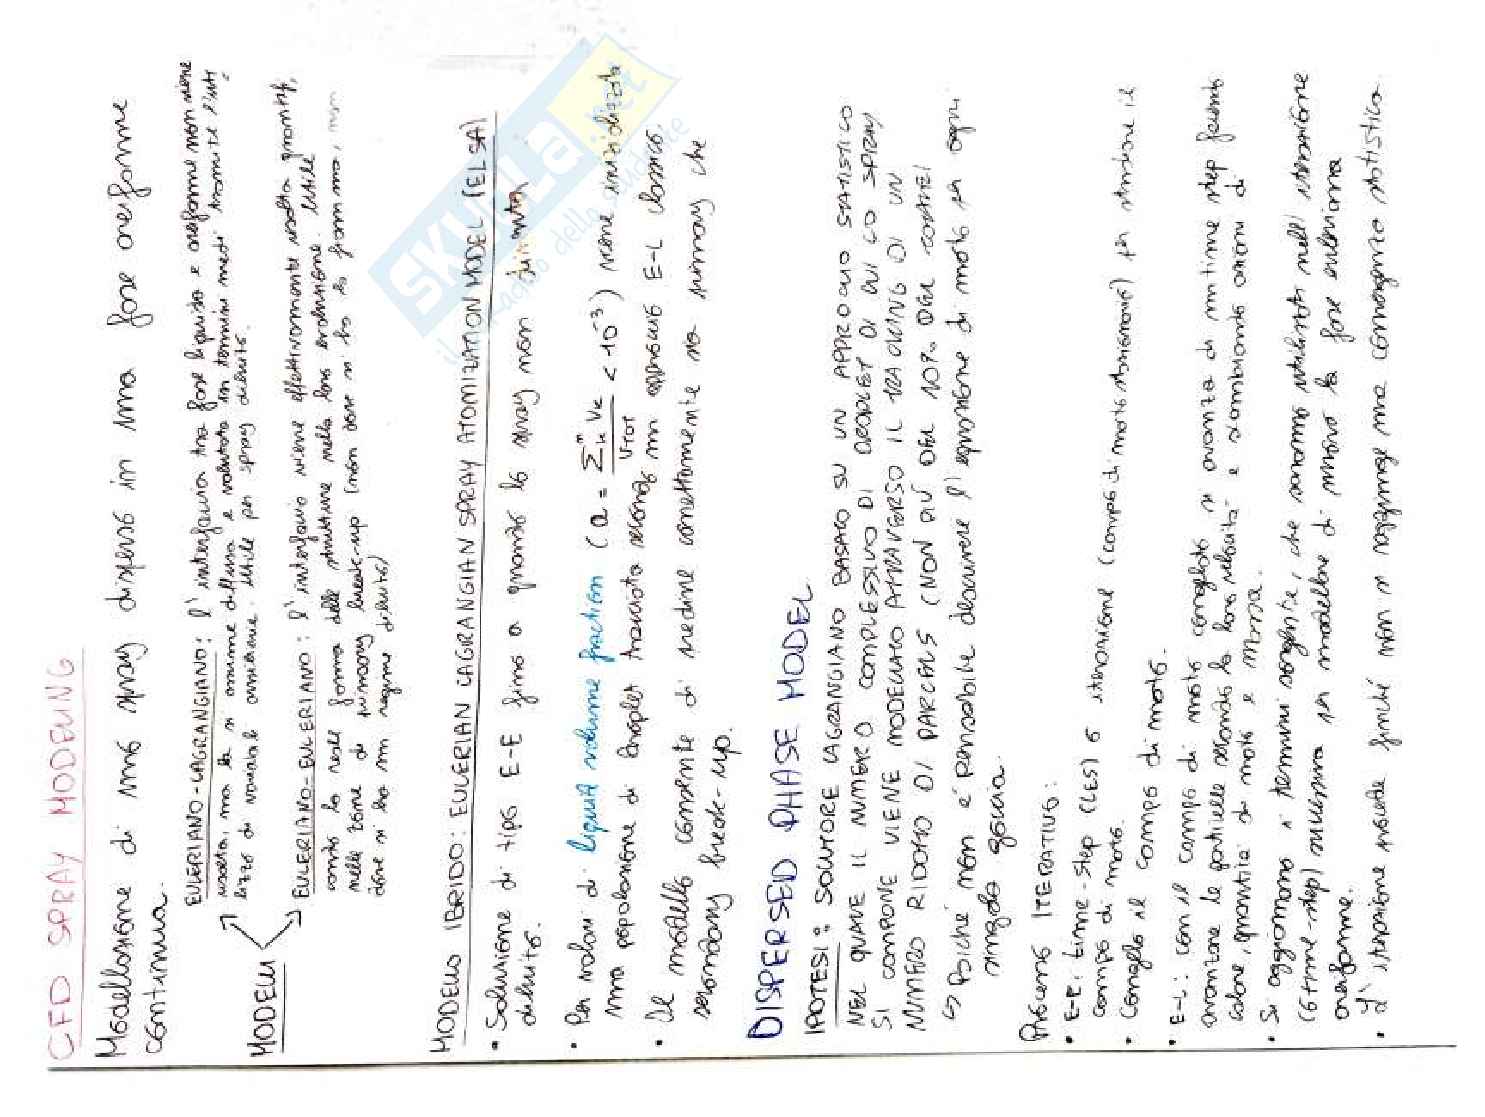 CFD SPRAY MODELING
Modellazione di uno spray disperso in una fase aeriforme
continua.
EULERIANO-LAGRANGIANO: l'interfaccia tra fase liquida e aeriforme non viene
risolta, ma la si assume diffusa e valutata in termini medi tramite l'uti
lizzo di variabili ausiliarie. Utile per spray diluito.
MODELLI
EULERIANO-EULERIANO: l'interfaccia viene effettivamente risolta
conto la reale forma delle strutture nella loro evoluzione. Utile
nelle zone di primary break-up (non dove si ha la fiamma, non
dove si ha un regime diluito)
MODELLO IBRIDO: EULERIAN LAGRANGIAN SPRAY ATOMIZATION MODEL (ELSA)
• Soluzione di tipo E-E fino a quando lo spray non diventa
diluito.
• Per valori di liquid volume fraction (α = Σₖⁿ Vₖ / VTOT < 10⁻³) viene inizializzata
una popolazione di droplet tracciata secondo un approccio E-L classico.
• Il modello consente di vedere correttamente sia primary che
secondary break-up.
DISPERSED PHASE MODEL
IPOTESI: SOLUTORE LAGRANGIANO BASATO SU UN APPROCCIO STATISTICO
NEL QUALE IL NUMERO COMPLESSIVO DI DROPLET DI CUI LO SPRAY
SI COMPONE VIENE MODELLATO ATTRAVERSO IL TRACKING DI UN
NUMERO RIDOTTO DI PARCELS (NON PIÙ DEL 10% DEL CONTRE)
↳ Poiché non è pensabile descrivere l'equazione di moto per ogni
singola goccia.
PROCESSO ITERATIVO:
• E-E: time-step (LES) o iterazione (campo di moto stazionario) per il
campo di moto.
• Congelo il campo di moto.
• E-L: con il campo di moto congelato si avanza di un time step facendo
avanzare le particelle secondo la loro velocità e scambiando azioni di
calore, quantità di moto e massa.
• Si aggiornano i termini sorgente, che saranno utilizzati nell'iterazione
(o time-step) successiva per modellare di nuovo la fase euleriana
aeriforme.
• L'iterazione procede finché non si raggiunge una convergenza statistica.
SKUOLA.net
il paradiso dello studente